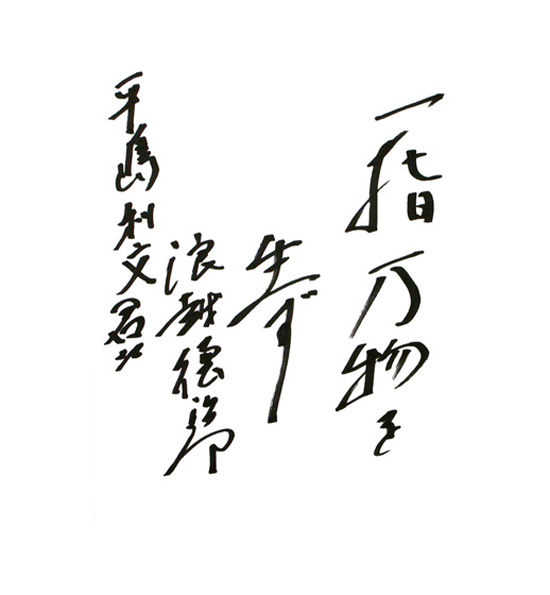 一指万物を
生ず
浪越徳治郎
平島利文君